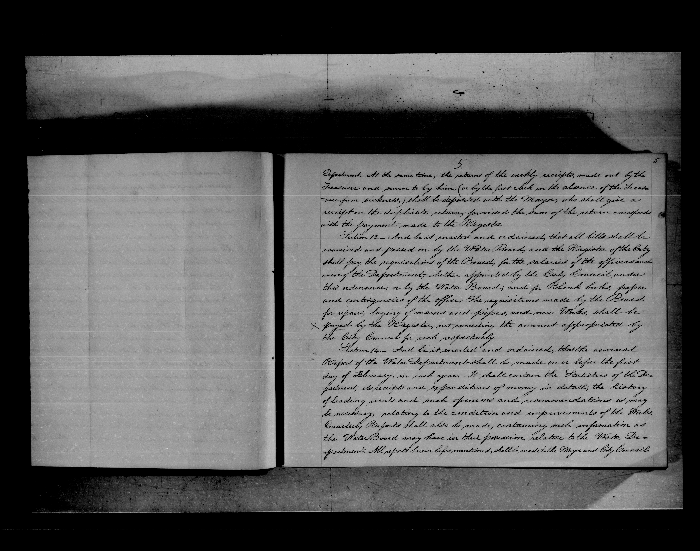 5
5
Department. At the same time, the returns of the weekly receipts, made out by the
Treasurer and sworn to by him (or by the first clerk in the absence of the
from sickness,) shall be deposited with the Mayor, who shall give a
receipt on the duplicate returns provided the sum of the return corresponds
with the payment made to the Register.
Section 12 — And be it enacted and ordained, that all bills shall be
received and passed on by the Water Board, and the Register of the City
shall pay the requisitions of the Board, for the salaries of the officers and
the Department, whether appointed by the City Council under
this ordinance, or by the Water Board, and for Blank books, paper
and contingencies of the office. The requisitions made by the Board
for repairs, laying of mains and pipes, and new Works, shall be
X paid by the Register, not exceeding the amount appropriated by
the City Council for such respectively.
Section — And be it enacted and ordained, that the annual
Report of the Water Department shall be made on or before the first
day of February, in each year. It shall contain the Statistics of the De-
partment, its receipts and expenditures of money in detail, the history
of leading and such opinions and recommendations as may
be necessary, relating to the condition and improvements of the Works.
Quarterly Reports shall also be made, containing such information as
the Water Board may have in their possession relative to the Water De-
partment. All reports herein before mentioned, shall be made to the Mayor and City Council